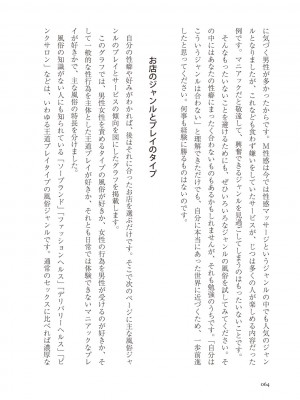 に気づく男性が多かったからです。M性感は今では性感マッサージというジャンルの中でも人気のジャン
ルとなりましたが、これなども食わず嫌いをしていたサービスが、じつは多くの人が楽しめる内容だった
例です。マニアックだと敬遠して、興奮できるジャンルを見過ごしてしまうのはもったいないことです。
そんなもったいないことを避けるためにも、ぜひいろいろなジャンルの風俗を試してみてください。そ
の中にはあなたの性癖に合わないものもあるかもしれませんが、それも勉強のうちです。「自分は
こういうジャンルは合わない」と理解できただけでも、自分に本当にあった世界に近づくため、一歩前進
したと思ってください。何事も経験に勝るものはないのです。
お店のジャンルとプレイのタイプ
自分の性癖や好みがわかれば、後はそれに合ったお店を選ぶだけです。そこで次のページに主な風俗ジャ
ンルのプレイとサービスの傾向を図にしたグラフを掲載します。
このグラフでは、男性が女性を責めるタイプの風俗が好きか、女性の行為を男性が受けるのが好きか、そ
して一般的な性行為を主体とした王道プレイが好きか、それとも日常では体験できないマニアックなプレ
イが好きかで、主な風俗の特長を分けました。
風俗の知識がない人にも知られている「ソープランド」「ファッションヘルス」「デリバリーヘルス」「ピ
ンクサロン」などは、いわゆる王道プレイタイプの風俗ジャンルです。通常のセックスに比べれば濃厚な
064